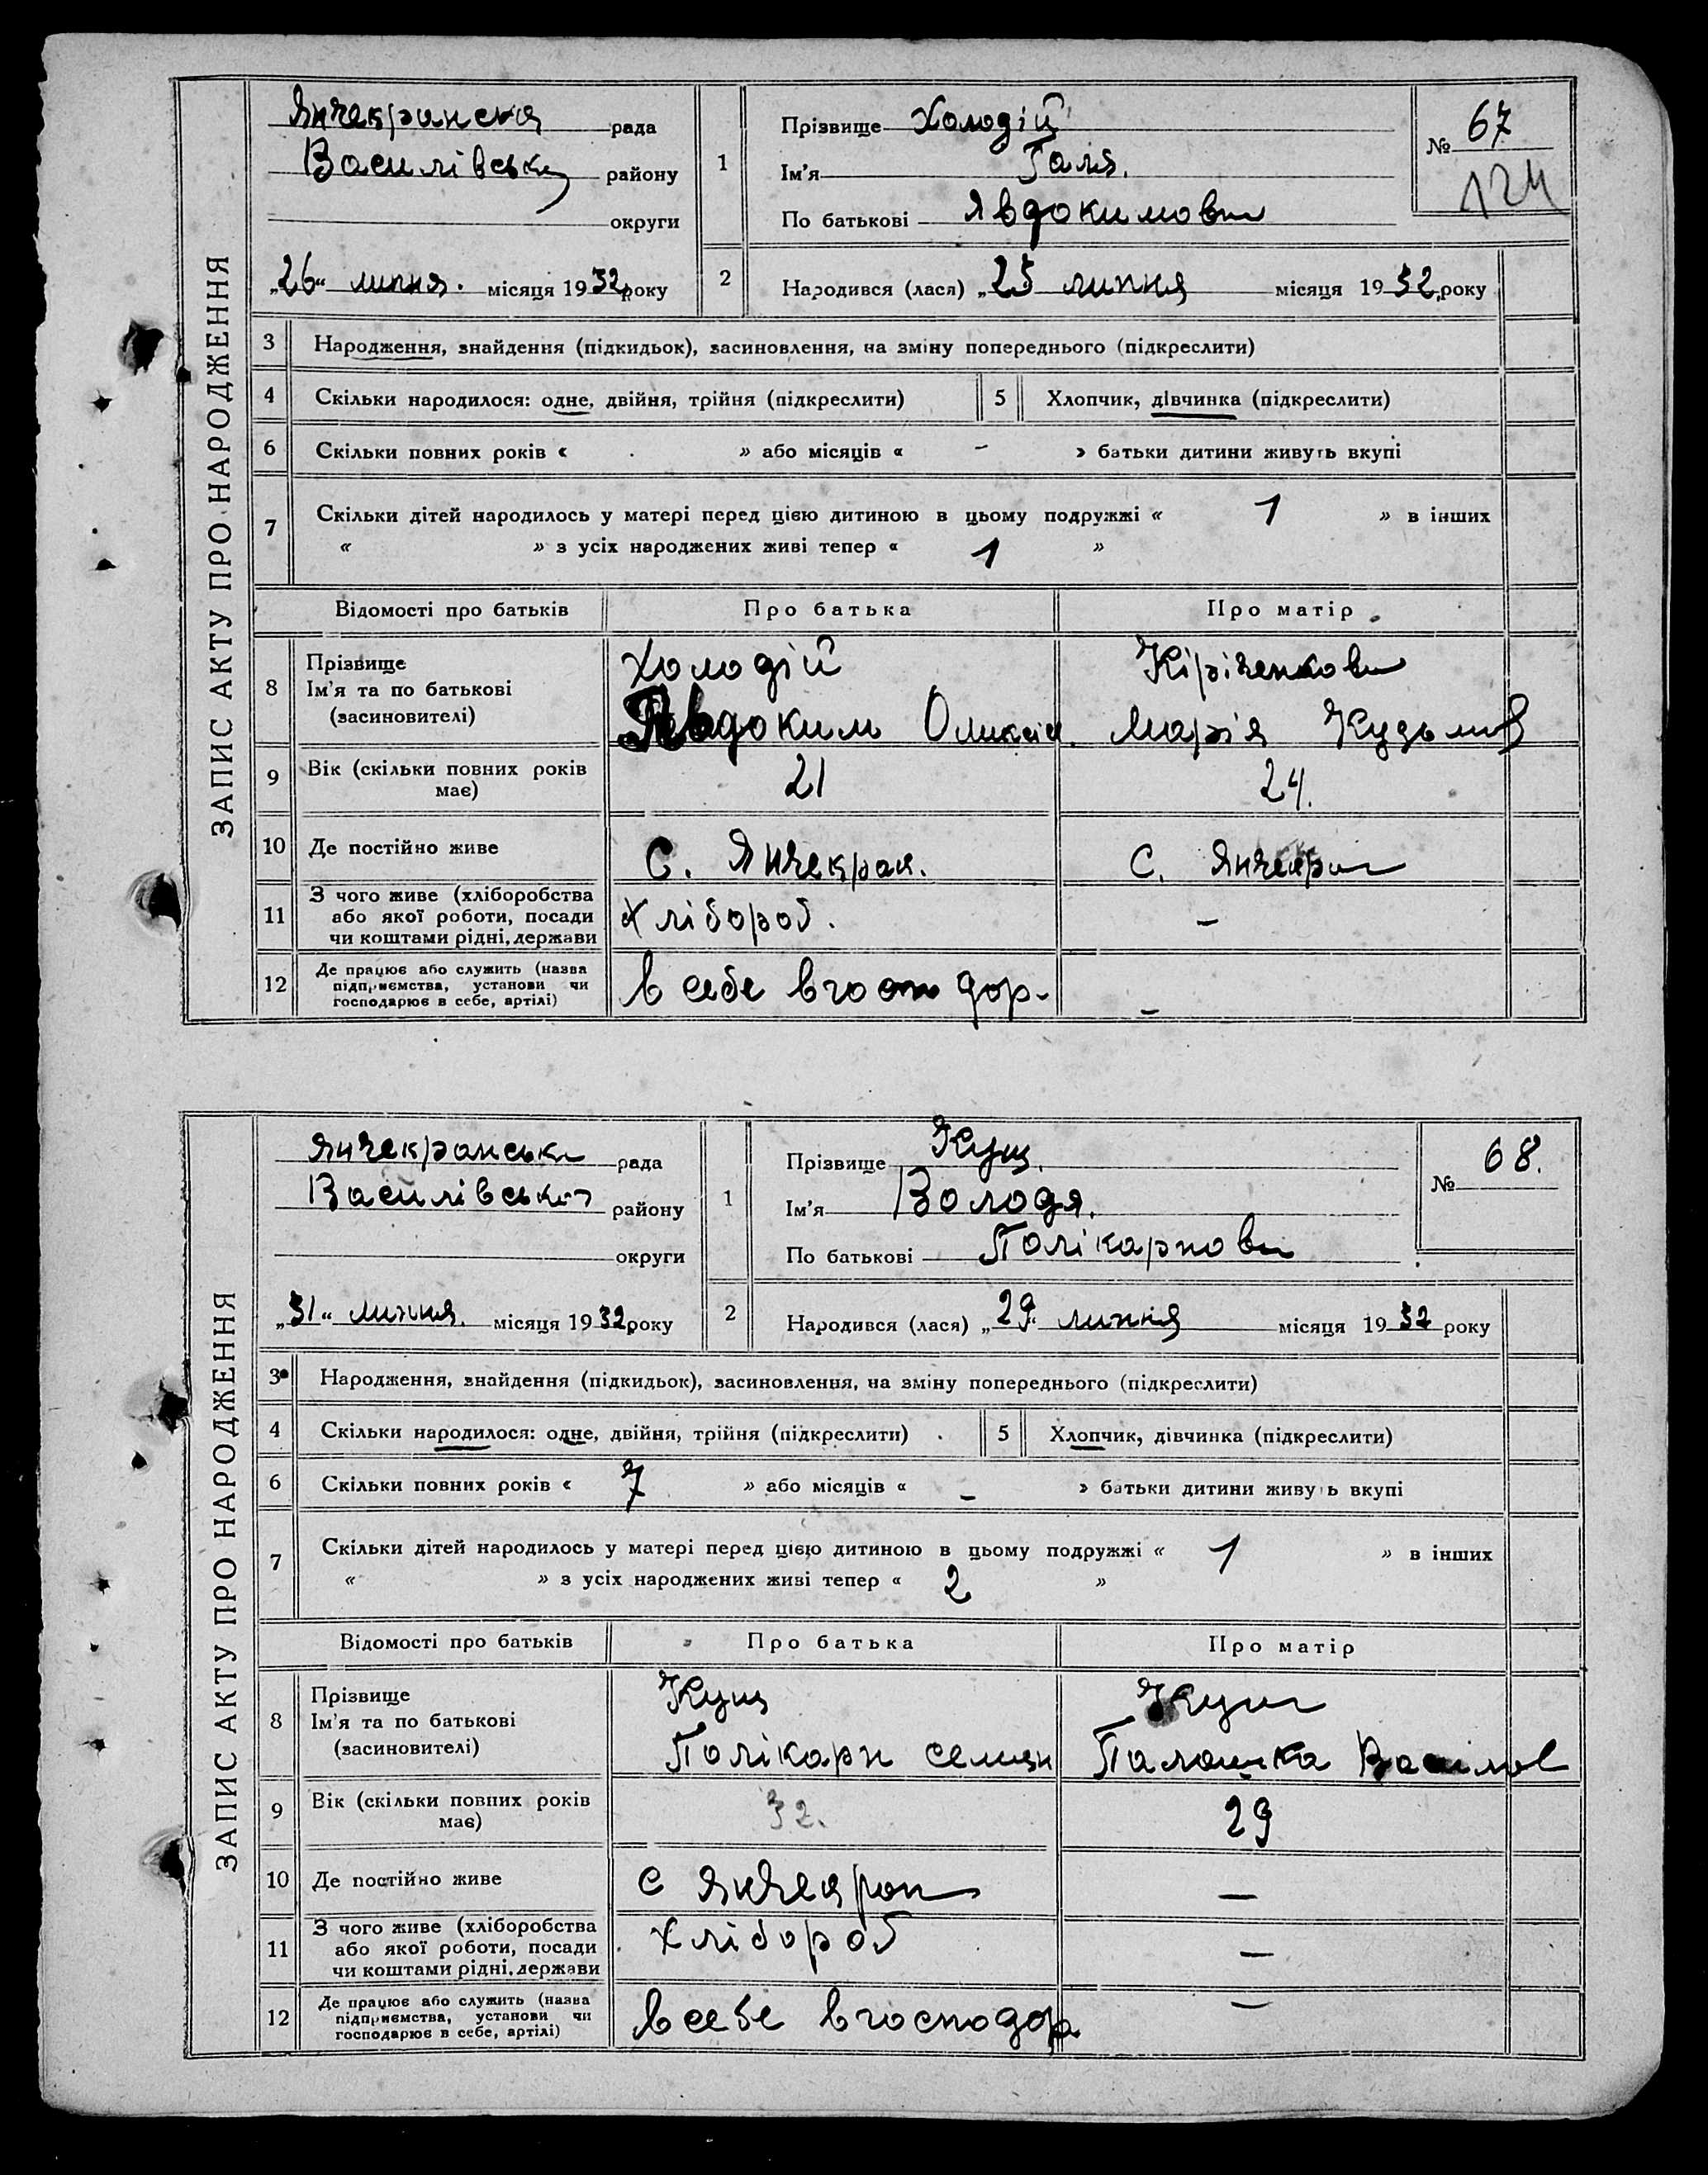 ЗАПИС АКТУ ПРО НАРОДЖЕННЯ
Янчекранска рада
Василівськ району
округи
„26“ липня. місяця 1932 року
1
Прізвище Холодій
Ім'я Галя.
По батькові Явдокимовн
№ 67
124
2
Народився (лася) „25 липня місяця 1932 року
3 Народження, знайдення (підкидьок), засиновлення, на зміну попереднього (підкреслити)
4 Скільки народилося: одне, двійня, трійня (підкреслити) 5 Хлопчик, дівчинка (підкреслити)
6 Скільки повних років « » або місяців « – » батьки дитини живуть вкупі
7 Скільки дітей народилось у матері перед цією дитиною в цьому подружжі « 1 » в інших
« » з усіх народжених живі тепер « 1 »
Відомості про батьків Про батька Про матір
8 Прізвище Ім'я та по батькові (засиновителі)
Холодій Кіріченкова
Явдоким Олексій. Марія Кудьмов
9 Вік (скільки повних років має) 21 24.
10 Де постійно живе С. Янчекрак. С. Янчекрак
11 З чого живе (хліборобства або якої роботи, посади чи коштами рідні, держави Хлібороб. –
12 Де працює або служить (назва підприємства, установи чи господарює в себе, артілі) в себе в господор. –
ЗАПИС АКТУ ПРО НАРОДЖЕННЯ
Янчекранська рада
Василівського району
округи
„31“ липня. місяця 1932 року
1
Прізвище Кущ.
Ім'я Володя.
По батькові Полікарпови
№ 68.
2
Народився (лася) „29“ липня місяця 1932 року
3 Народження, знайдення (підкидьок), засиновлення, на зміну попереднього (підкреслити)
4 Скільки народилося: одне, двійня, трійня (підкреслити) 5 Хлопчик, дівчинка (підкреслити)
6 Скільки повних років « 7 » або місяців « – » батьки дитини живуть вкупі
7 Скільки дітей народилось у матері перед цією дитиною в цьому подружжі « 1 » в інших
« » з усіх народжених живі тепер « 2 »
Відомості про батьків Про батька Про матір
8 Прізвище Ім'я та по батькові (засиновителі)
Кущ Кущ
Полікарп Семен Палашка Васілов
9 Вік (скільки повних років має) 32. 29
10 Де постійно живе С Янчекрак –
11 З чого живе (хліборобства або якої роботи, посади чи коштами рідні, держави Хлібороб –
12 Де працює або служить (назва підприємства, установи чи господарює в себе, артілі) в себе в господор –